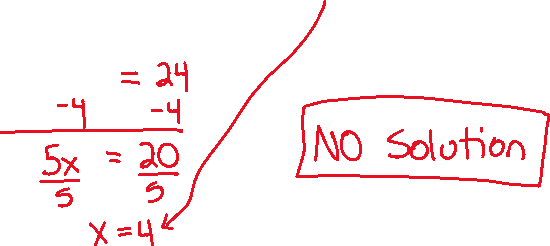 = 24
-4 -4
5x/5 = 20/5
x = 4
NO Solution